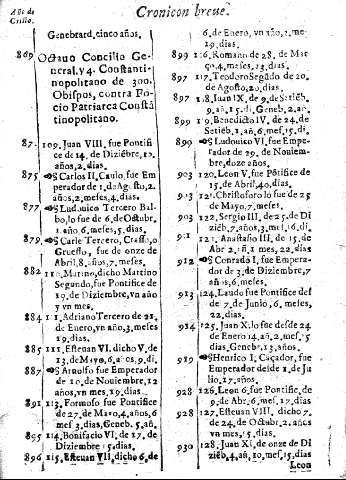 Año de
Cristo.
Cronicon breue.
Genebrard, cinco años.
869 Octauo Concilio Ge-
neral, y 4. Constanti-
nopolitano de 300.
Obispos, contra Fo-
cio Patriarca Constã
tinopolitano.
109. Juan VIII, fue Pontifi-
ce de 14. de Diziẽbre, 10.
años, 2. dias.
875 Carlos II, Caulo, fue Em
perador de 1. de Agosto, 2.
años, 2. meses, 4. dias.
877 Luduuico Tercero Bal-
bo, lo fue de 6. de Octub.
1. año, 6. meses, 5. dias.
879 Carlo Tercero, Crasso, o
Gruesso, fue de onze de
Abril, 8. años, 7. meses.
882 110. Marino, dicho Martino
Segundo, fue Pontifice de
19. de Diziembre, vn año
y vn mes.
884 111. Adriano Tercero de 21.
de Enero, vn año, 3. meses
19. dias.
885 Esteuan VI. dicho V, de
13. de Mayo, 6. años, 9. di.
887 Arnolfo fue Emperador
de 10. de Nouiembre, 12
años, vn mes, 19. dias.
891 113. Formoso fue Pontifice
de 27. de Mayo, 4. años, 6
mes 3. dias, Geneb. 5. añ.
895 114. Bonifacio VI. de 17. de
Diziembre 15. dias.
896 115. Esteuan VII, dicho 6. de
6. de Enero, vn año, 2. me-
19. dias.
899 116. Romano de 28. de Mar
ço, 4. meses, 23. dias.
897 117. Teodoro Segũdo de 20.
de Agosto, 20. dias.
897 118. Juan IX, de 9. de Setiẽb.
9. añ, 15. di, Geneb. 2. añ.
899 119. Benedicto IV. de 24. de
Setiẽb, 1. añ, 6. mes, 15. di.
899 Luduuico VI, fue Empe-
rador de 29. de Nouiem-
bre, doze años.
903 120. Leon V, fue Põtifice de
15. de Abril, 40. dias.
903 121. Christoforo lo fue de 25
de Mayo, 7. meses.
903 122. Sergio III, de 25. de Di
ziẽb, 7. años, 3. mes, 16. di.
123. Anastasio III, de 15. de
Abr 2. añ, 1. mes, 22. dias
912 Conrado I, fue Empera-
dor de 3. de Diziembre, 7
años, 6. meses.
913 124. Laudo fue Pontifice desf
de 7. de Junio, 6. meses,
22. dias.
914 125. Juan X, lo fue desde 24
de Enero 14. añ, 2. mes, 15
dias, Genebr. 13. años.
919 Henrico I, Caçador, fue
Emperador desde 1. de Ju
lio, 17. años.
928 126. Leon 6. fue Pontific, de
9. de Abr, 6. mes, 17. dias
928 127. Esteuan VIII, dicho 7.
de 24. de Octub, 2. años
vn mes, 15. dias.
930 128. Juan XI, de onze de Di
ziẽb, 4. añ, 10. mes, 15. dias
Leon